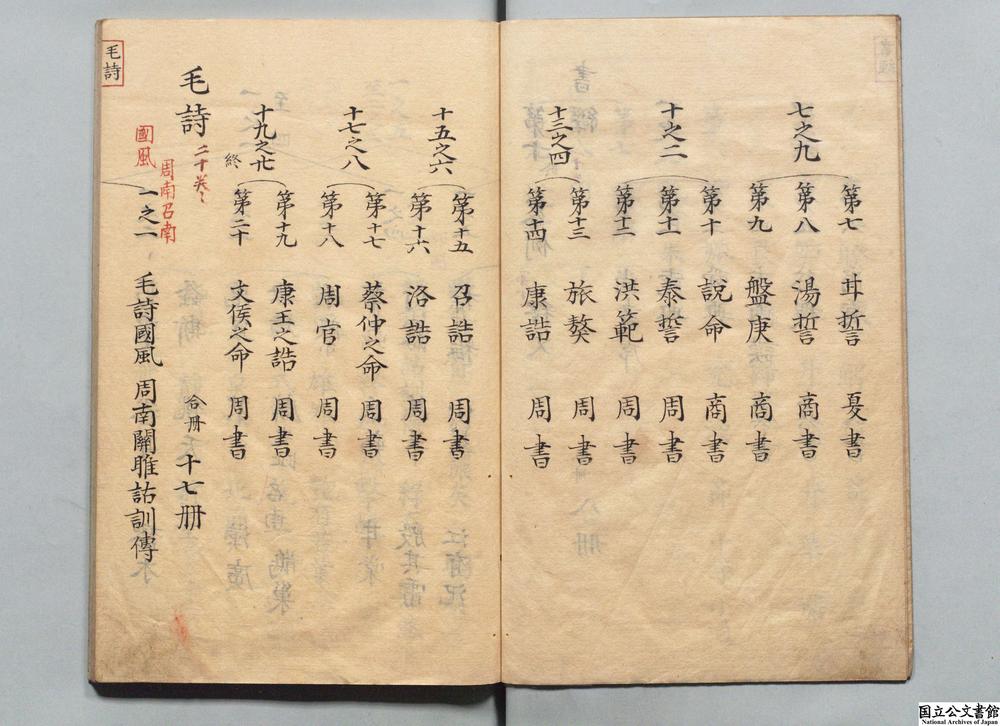 七之九
第七 甘誓 夏書
第八 湯誓 商書
第九 盤庚 商書
十之二
第十 說命 商書
第十一 泰誓 周書
第十二 洪範 周書
十三之四
第十三 旅獒 周書
第十四 康誥 周書
十五之六
第十五 召誥 周書
第十六 洛誥 周書
十七之八
第十七 蔡仲之命 周書
第十八 周官 周書
十九之廿 終
第十九 康王之誥 周書
第二十 文侯之命 周書
毛詩 二十巻 合冊 十七冊
國風 周南召南
一之二 毛詩國風 周南關雎詁訓傳
毛詩
国立公文書館
National Archives of Japan